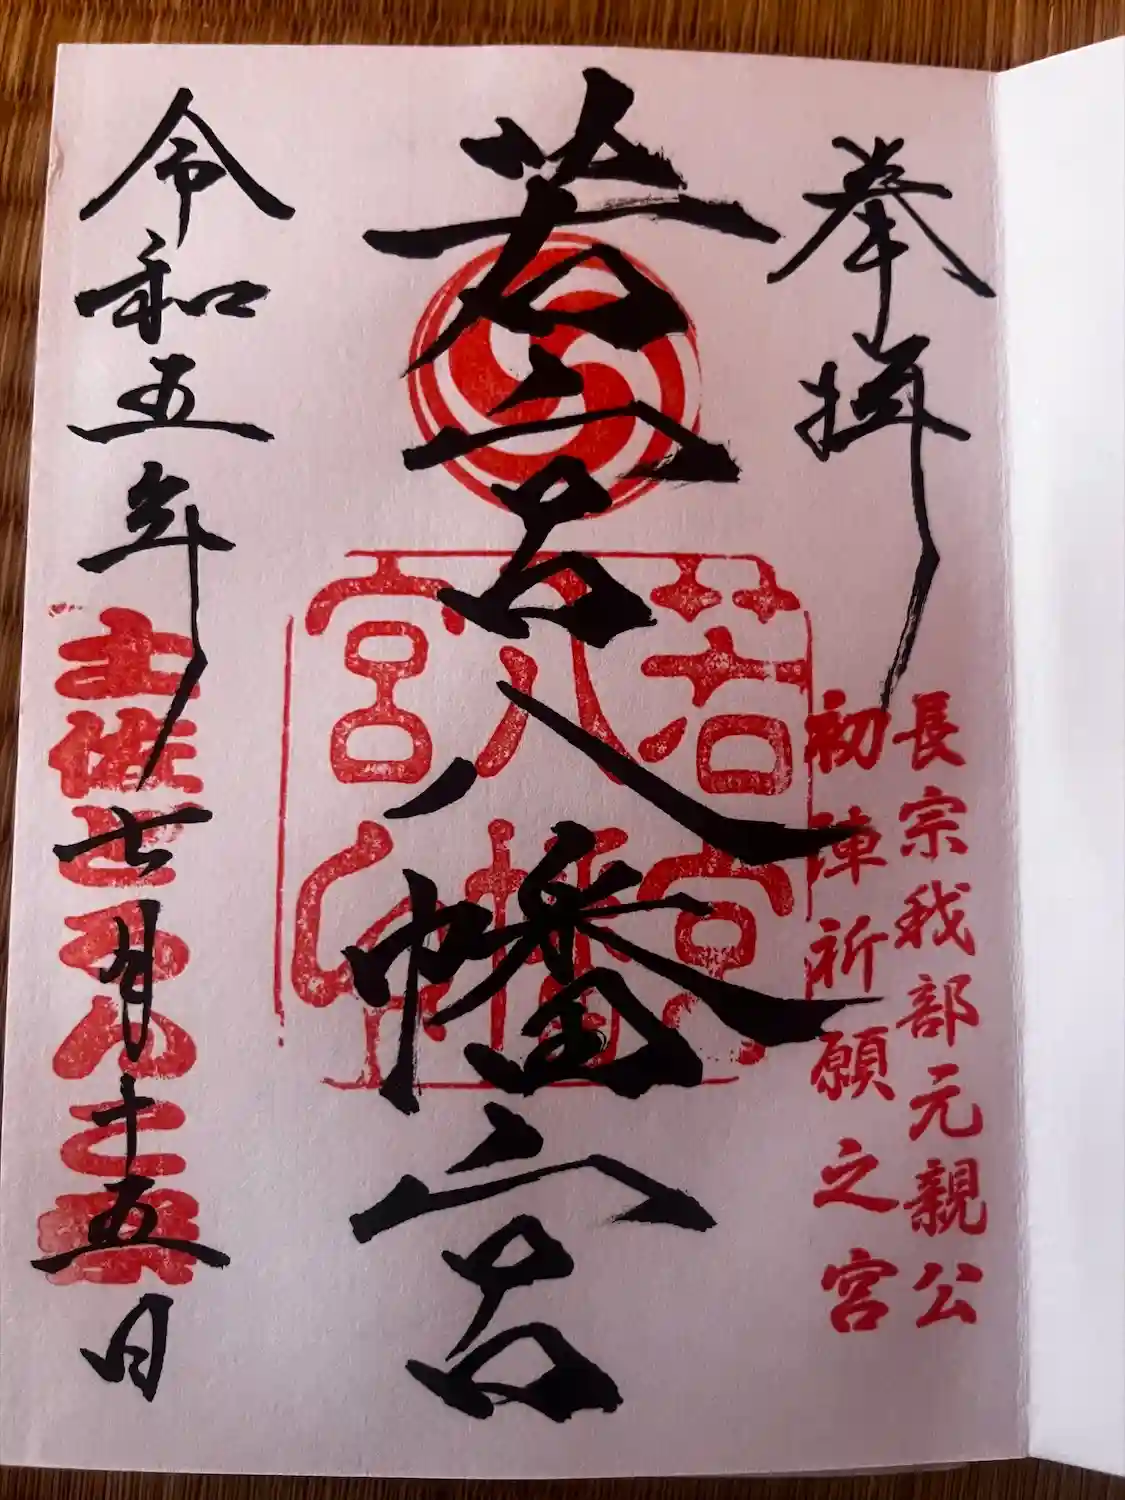 奉拝
長宗我部元親公
初陣祈願之宮
若宮八幡宮
若宮
八幡
宮
令和五年七月十五日